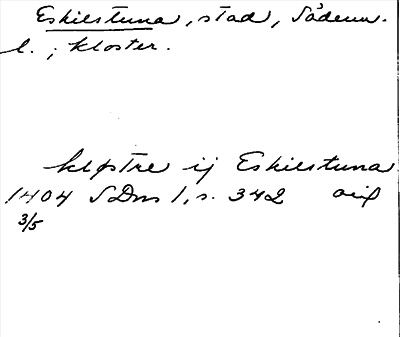 Eskilstuna, stad, Söderm.
l.; kloster.
kløstre ij Eskilstuna
1404 SDns 1, s. 342 avs
3/5